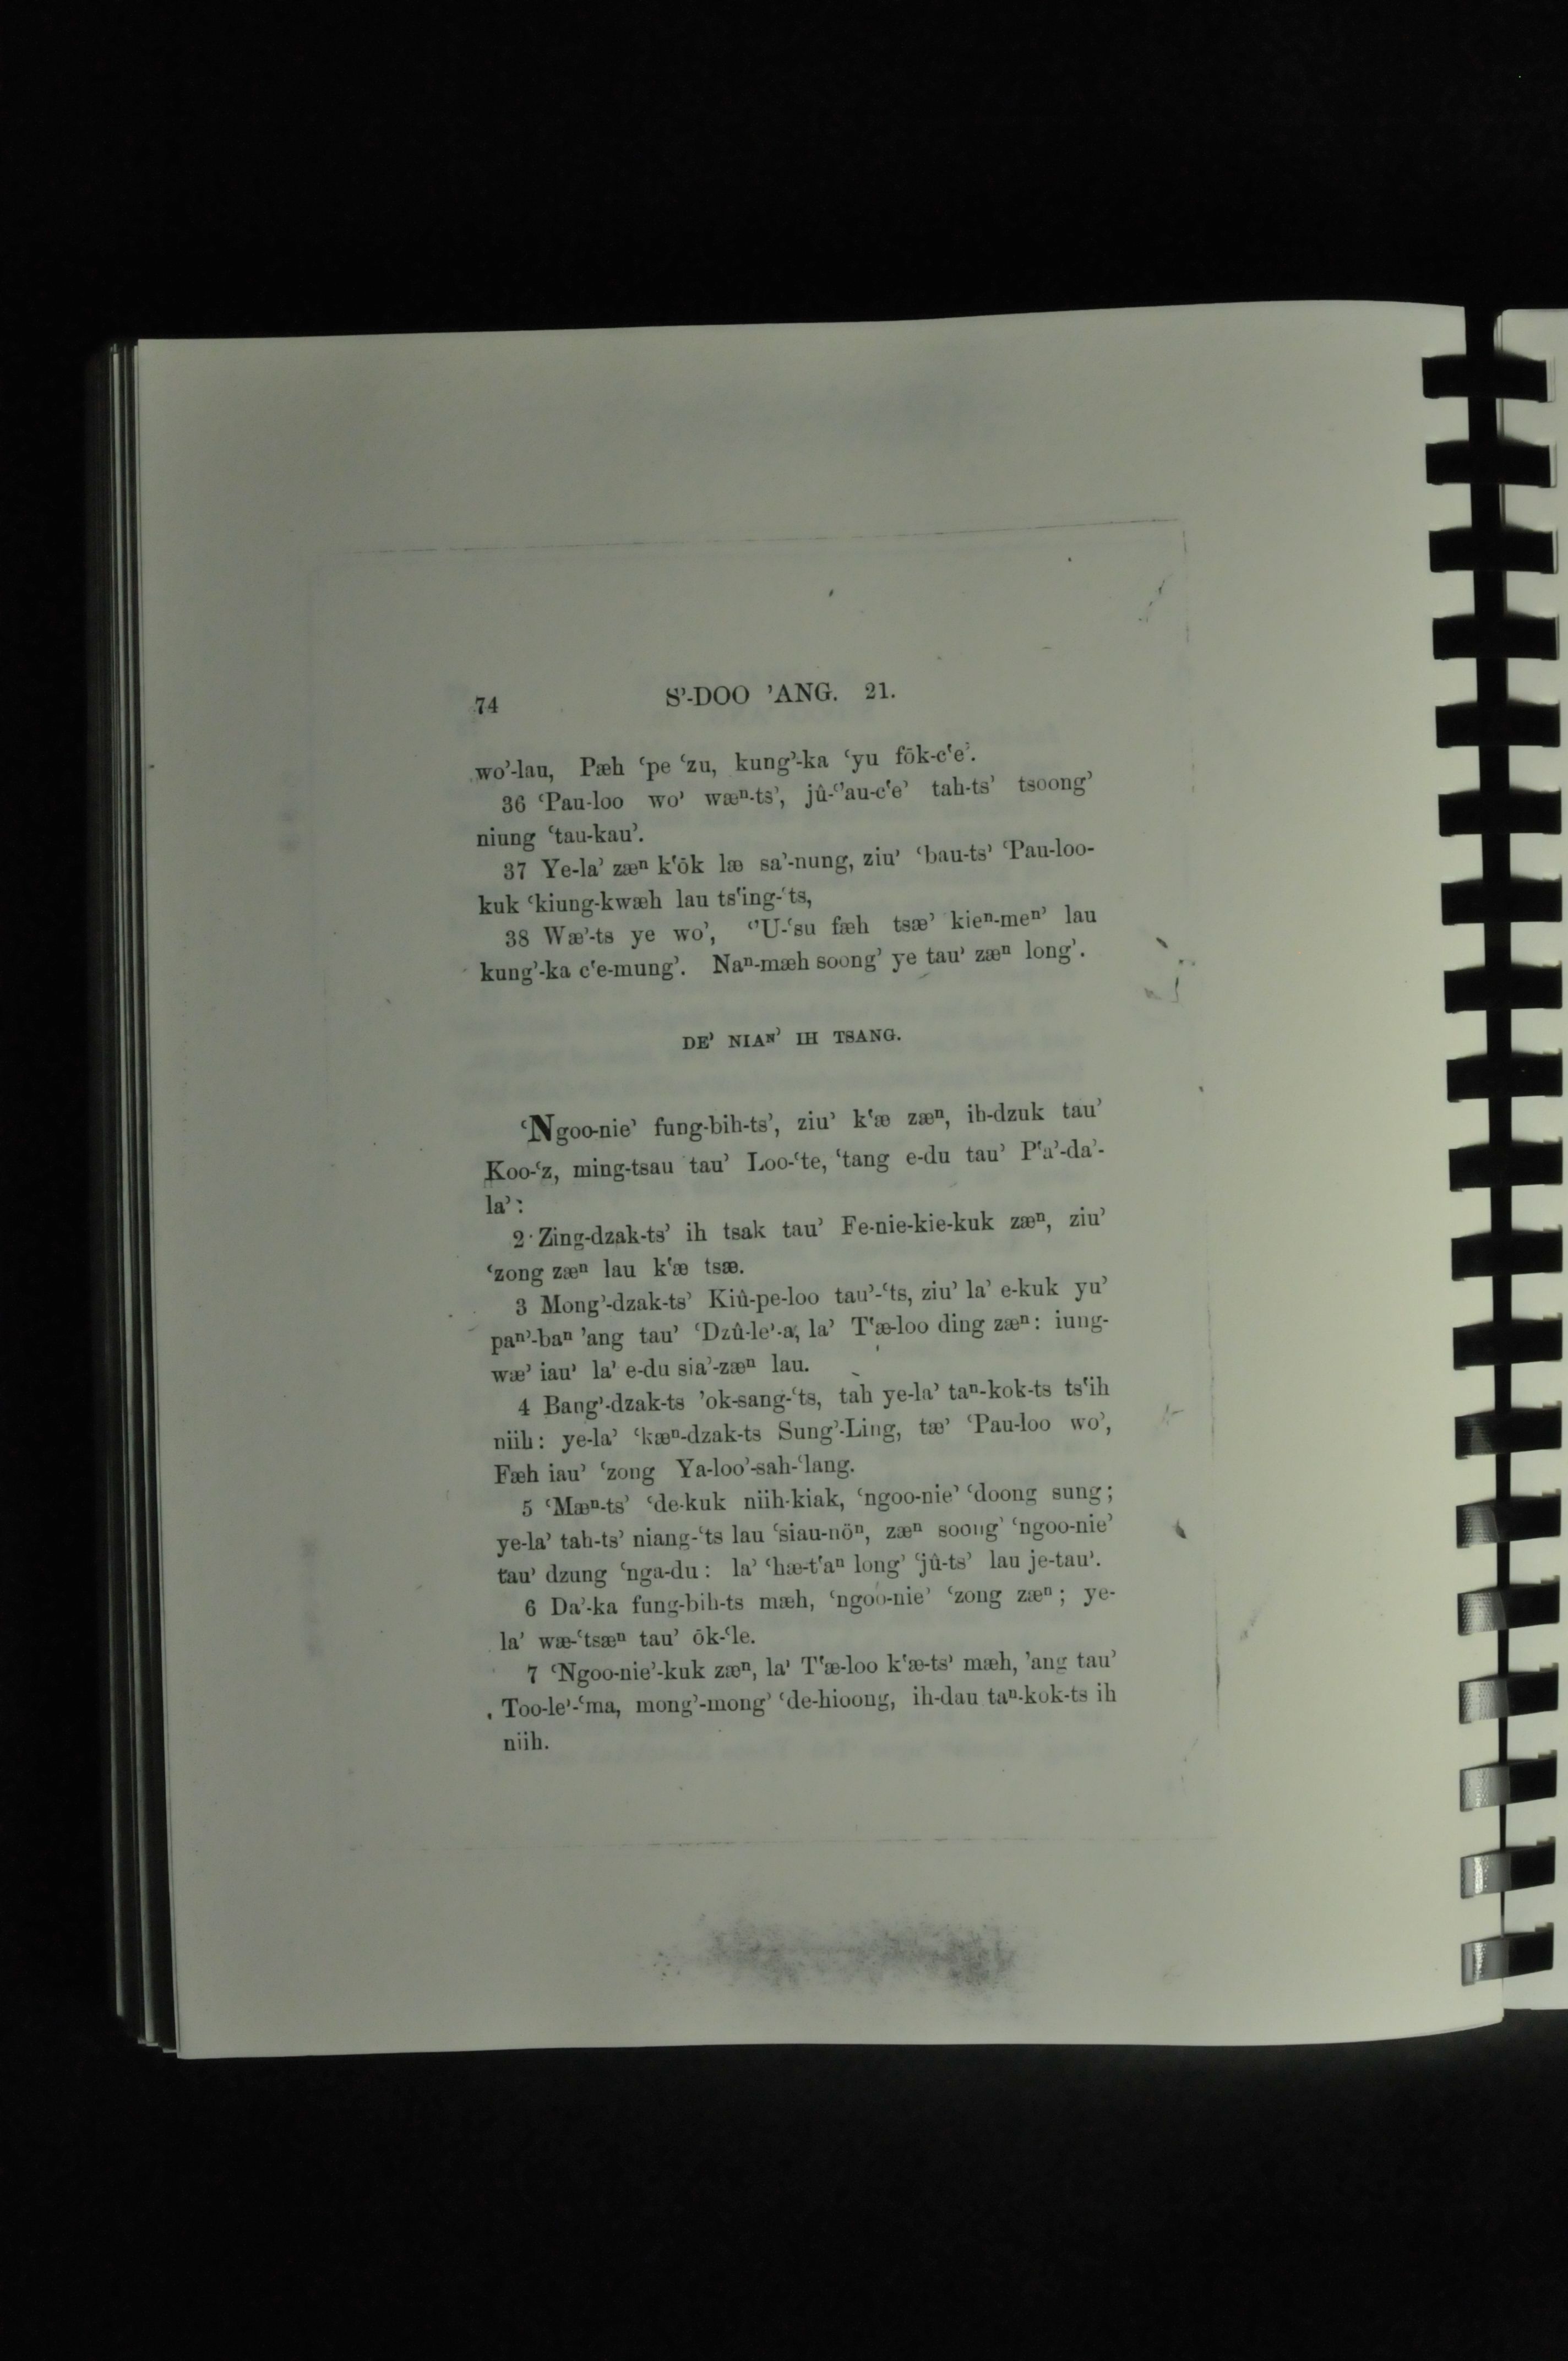 74 S’-DOO ’ANG. 21.
wo’-lau, Pæh ‘pe ‘zu, kung’-ka ‘yu fōk-c‘e’.
36 ‘Pau-loo wo’ wæⁿ-ts’, jû-‘’au-c‘e’ tah-ts’ tsoong’
niung ‘tau-kau’.
37 Ye-la’ zæⁿ k‘ōk læ sa’-nung, ziu’ ‘bau-ts’ ‘Pau-loo-
kuk ‘kiung-kwæh lau ts‘ing-‘ts,
38 Wæ’-ts ye wo’, ‘’U-‘su fæh tsæ’ kieⁿ-meⁿ’ lau
kung’-ka c‘e-mung’. Naⁿ-mæh soong’ ye tau’ zæⁿ long’.
DE’ NIAⁿ’ IH TSANG.
‘Ngoo-nie’ fung-bih-ts’, ziu’ k‘æ zæⁿ, ih-dzuk tau’
Koo-‘z, ming-tsau tau’ Loo-‘te, ‘tang e-du tau’ P‘a’-da’-
la’:
2 Zing-dzak-ts’ ih tsak tau’ Fe-nie-kie-kuk zæⁿ, ziu’
‘zong zæⁿ lau k‘æ tsæ.
3 Mong’-dzak-ts’ Kiû-pe-loo tau’-‘ts, ziu’ la’ e-kuk yu’
paⁿ’-baⁿ ’ang tau’ ‘Dzû-le’-a, la’ T‘æ-loo ding zæⁿ: iung-
wæ’ iau’ la’ e-du sia’-zæⁿ lau.
4 Bang’-dzak-ts ’ok-sang-‘ts, tah ye-la’ taⁿ-kok-ts ts‘ih
niih: ye-la’ ‘kæⁿ-dzak-ts Sung’-Ling, tæ’ ‘Pau-loo wo’,
Fæh iau’ ‘zong Ya-loo’-sah-‘lang.
5 ‘Mæⁿ-ts’ ‘de-kuk niih-kiak, ‘ngoo-nie’ ‘doong sung;
ye-la’ tah-ts’ niang-‘ts lau ‘siau-nöⁿ, zæⁿ soong’ ‘ngoo-nie’
tau’ dzung ‘nga-du: la’ ‘hæ-t‘aⁿ long’ ‘jû-ts’ lau je-tau’.
6 Da’-ka fung-bih-ts mæh, ‘ngoo-nie’ ‘zong zæⁿ; ye-
la’ wæ-‘tsæⁿ tau’ ōk-‘le.
7 ‘Ngoo-nie’-kuk zæⁿ, la’ T‘æ-loo k‘æ-ts’ mæh, ’ang tau’
Too-le’-‘ma, mong’-mong’ ‘de-hioong, ih-dau taⁿ-kok-ts ih
niih.